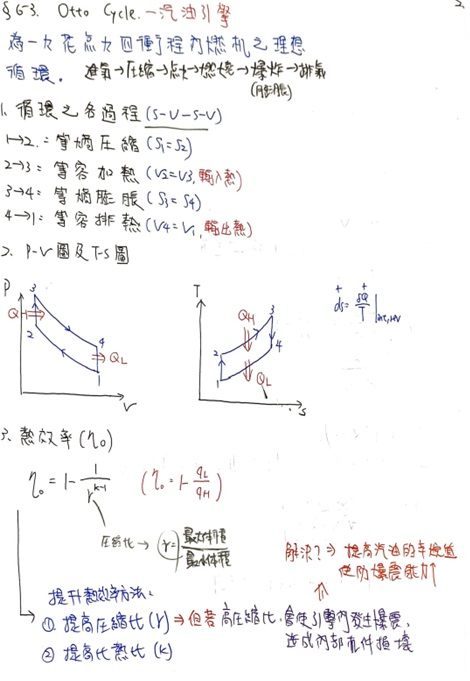 §6-3. Otto Cycle. 一汽油引擎
為一火花点火四衝程內燃机之理想
循環. 進氣→圧縮→点火→燃燒→爆炸→排氣
(膨脹)
1. 循環之各過程 (S-V-S-V)
1→2: 等熵圧縮 (S1=S2)
2→3: 等容加熱 (V2=V3, 輸入熱)
3→4: 等熵膨脹 (S3=S4)
4→1: 等容排熱 (V4=V1, 輸出熱)
2. P-V圖及T-S圖
P 3 QH 2 4 QL 1 V
T 3 QH 2 4 1 QL s
ds = δQ/T |int,rev
3. 熱效率 (η0)
η0 = 1 - 1/r^(k-1) (η0 = 1 - qL/qH)
圧縮比 → r = 最大体積/最小体積
解決? ⇒ 提高汽油的辛烷值
使防爆震能力↑
提升熱效率方法:
① 提高圧縮比 (r) ⇒ 但若高圧縮比, 會使引擎內發生爆震,
造成內部机件損壞
② 提高比熱比 (k)